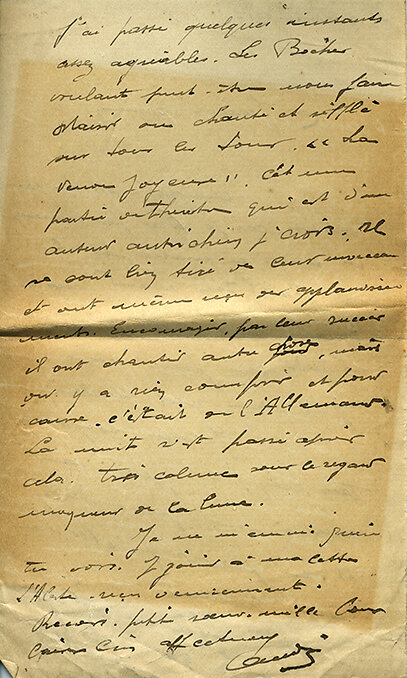 J'ai passé quelques instants
assez agréables. Les Boches
voulant peut-être nous faire
plaisir on chanté et sifflé
sur tous les tons. "La
veuve Joyeuse". C'est une
partie de théatre qui est d'un
auteur autrichien, j'crois. Il
se sont bien tiré de leur morceau
et ont même reçu des applaudisse
ments. Encouragés, par leur succès
il ont chanter autre chose, mais
on y a rien compris et pour
cause. c'était de l'Allemand.
La nuit s'est passé après
cela. très calme sous le regard
moqueur de la lune.
Je ne m'ennuie guère
tu vois. J'joins à ma lettre
Reçois. petite sœur. mille bons
baisers bien affectueux